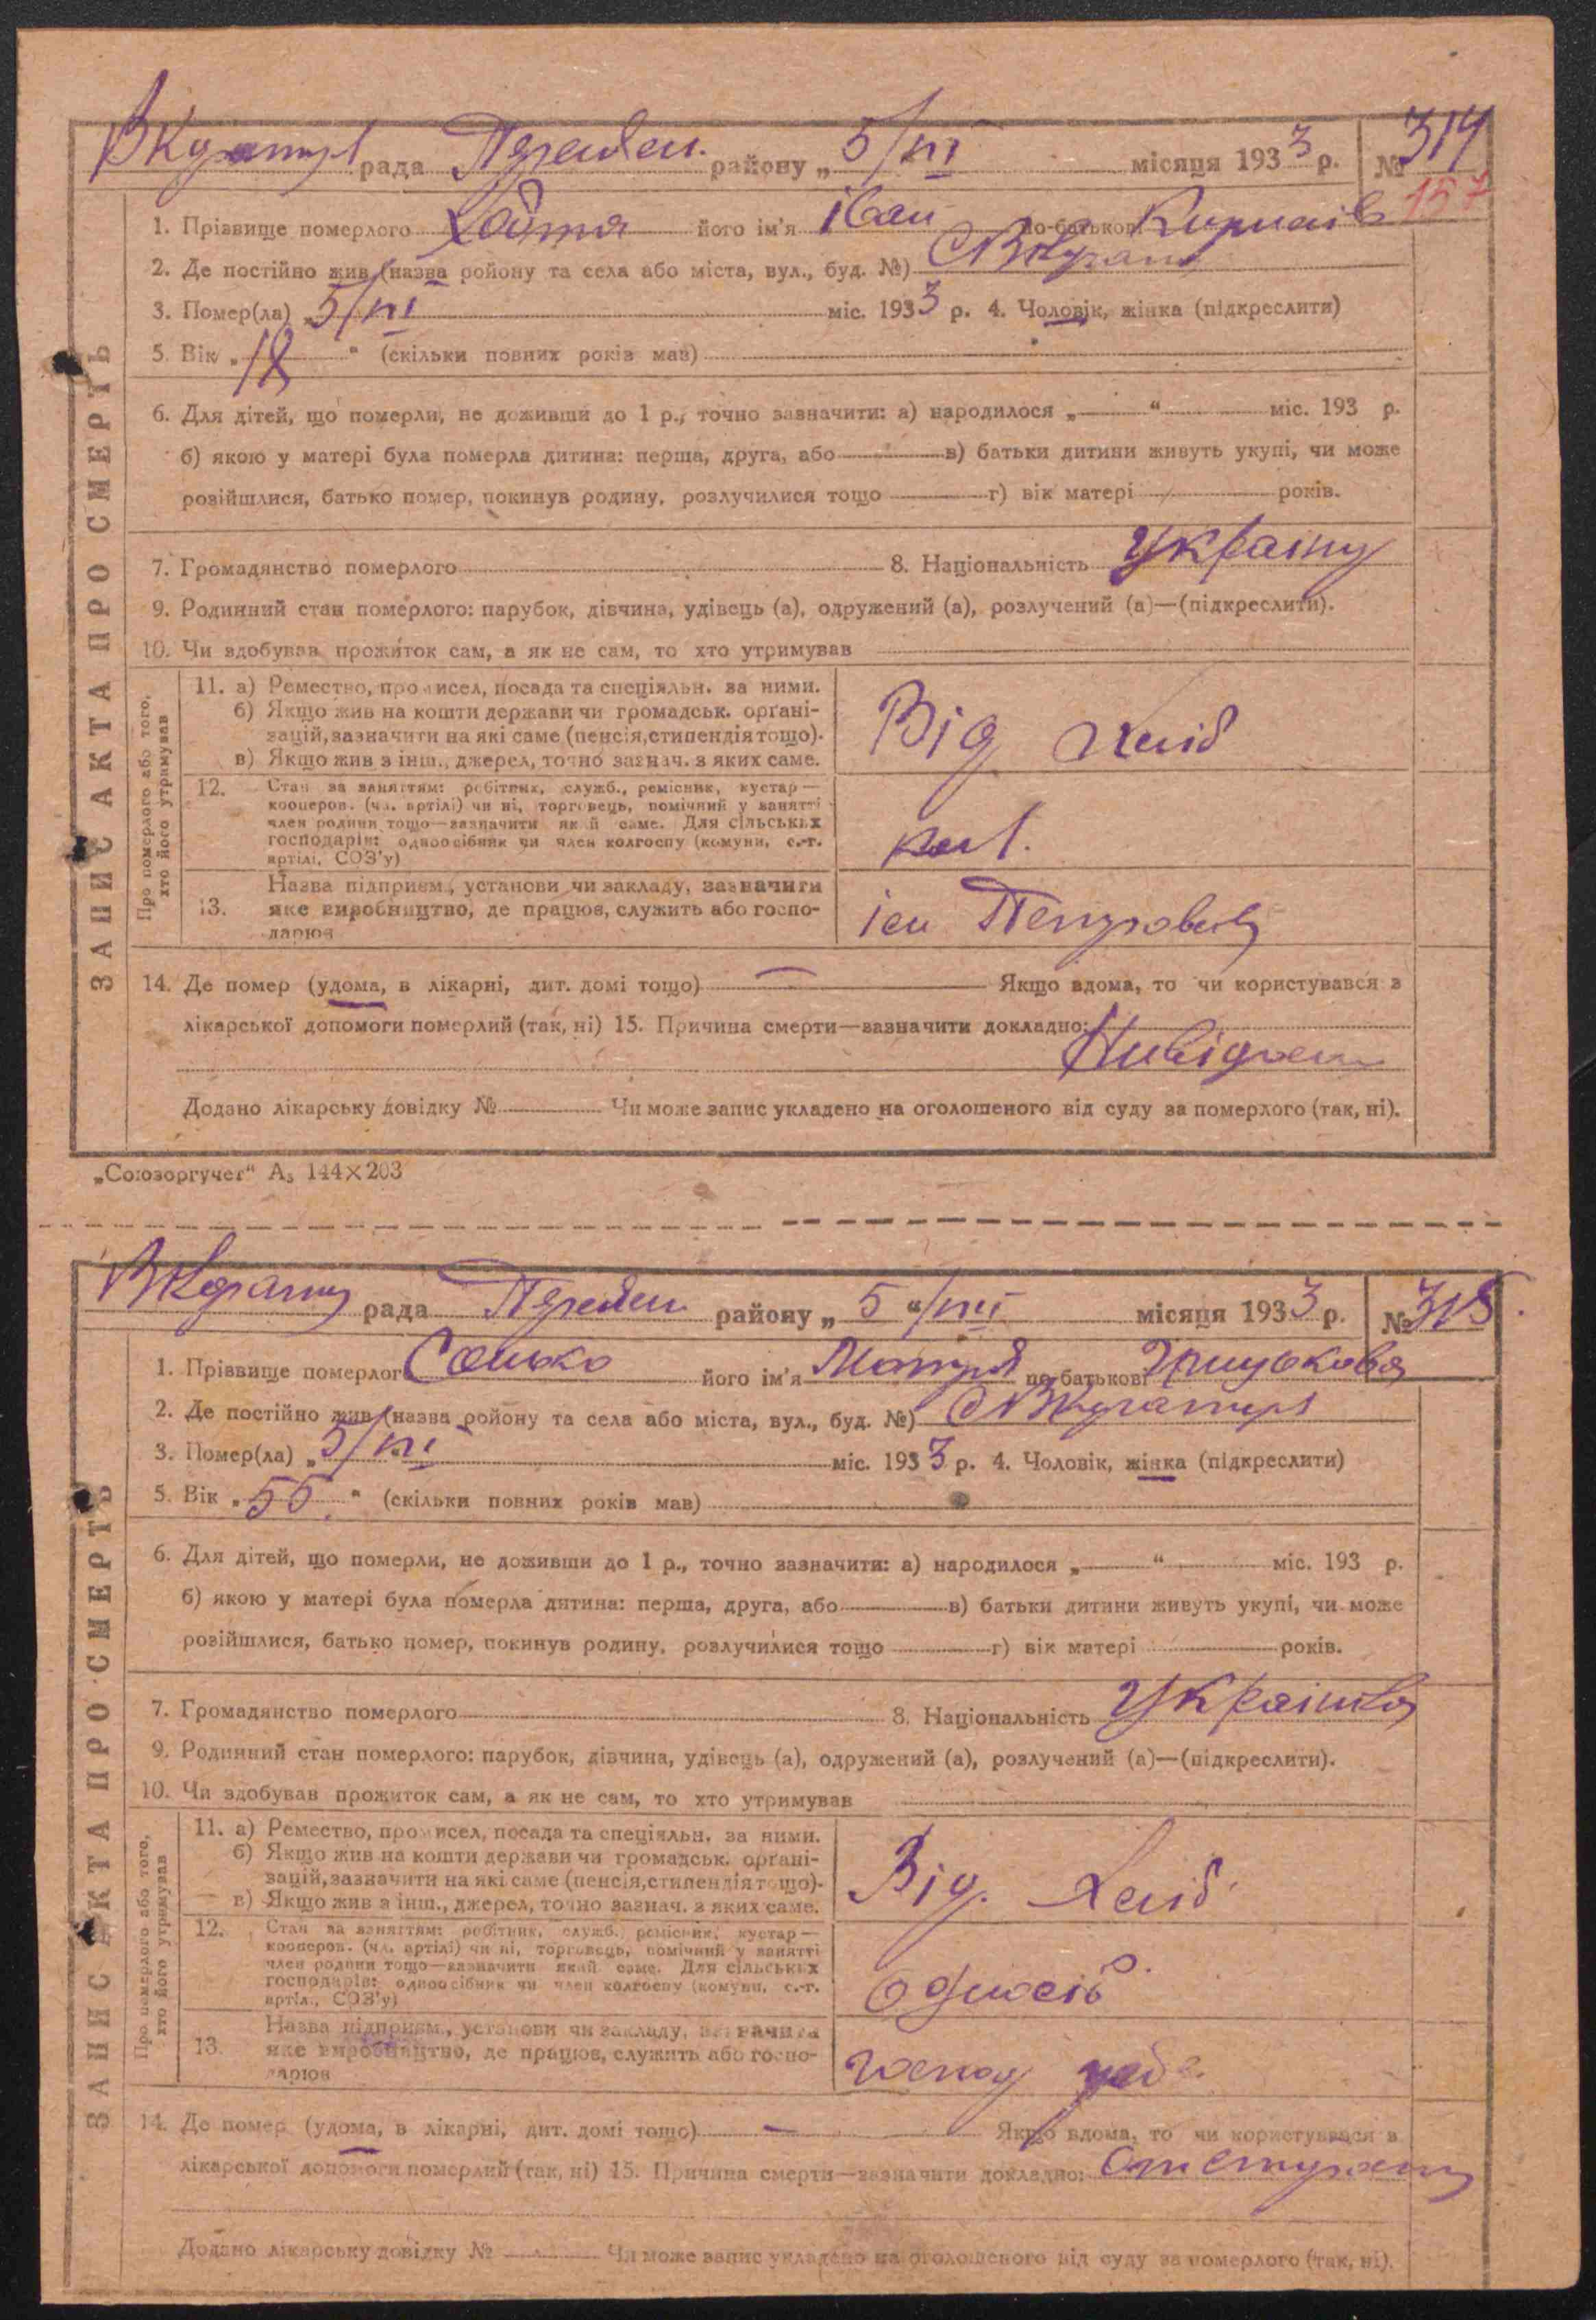 ВКаратул рада Переяслав. району „ 5/III місяця 1933 р. № 314
157
1. Прізвище померлого його ім'я Іван по-батькові
2. Де постійно жив (назва ройону та села або міста, вул., буд. №) С
3. Помер(ла) „ 5/III міс. 1933 р. 4. Чоловік, жінка (підкреслити)
5. Вік „ 18 “ (скільки повних років мав)
6. Для дітей, що померли, не доживши до 1 р., точно зазначити: а) народилося „ “ міс. 193 р.
б) якою у матері була померла дитина: перша, друга, або в) батьки дитини живуть укупі, чи може
розійшлися, батько помер, покинув родину, розлучилися тощо г) вік матері років.
7. Громадянство померлого 8. Національність
9. Родинний стан померлого: парубок, дівчина, удівець (а), одружений (а), розлучений (а)—(підкреслити).
10. Чи здобував прожиток сам, а як не сам, то хто утримував
Про померлого або того,
хто його утримував
11. а) Ремество, промисел, посада та спеціяльн. за ними.
б) Якщо жив на кошти держави чи громадськ. органі-
зацій, зазначити на які саме (пенсія, стипендія тощо).
в) Якщо жив з інш., джерел, точно зазнач. з яких саме.
Від Хліб
12. Стан за заняттям: робітник, служб., ремісник, кустар—
кооперов. (чл. артілі) чи ні, торговець, помічний у занятті
член родини тощо—зазначити який саме. Для сільських
господарів: одноосібник чи член колгоспу (комуни, с.-г.
артілі, СОЗ'у)
13. Назва підприєм., установи чи закладу, зазначити
яке виробництво, де працює, служить або госпо-
дарює
Петровськ
14. Де помер (удома, в лікарні, дит. домі тощо) — Якщо вдома, то чи користувався з
лікарської допомоги померлий (так, ні) 15. Причина смерти—зазначити докладно:
Додано лікарську довідку № Чи може запис укладено на оголошеного від суду за померлого (так, ні).
ЗАПИС АКТА ПРО СМЕРТЬ
„Союзоргучет“ А₅ 144×203
рада району „ 5 “/III місяця 1933 р. № 315
1. Прізвище померлого його ім'я по-батькові
2. Де постійно жив (назва ройону та села або міста, вул., буд. №) С
3. Помер(ла) „ 5/III міс. 1933 р. 4. Чоловік, жінка (підкреслити)
5. Вік „ 55 “ (скільки повних років мав)
6. Для дітей, що померли, не доживши до 1 р., точно зазначити: а) народилося „ “ міс. 193 р.
б) якою у матері була померла дитина: перша, друга, або в) батьки дитини живуть укупі, чи може
розійшлися, батько помер, покинув родину, розлучилися тощо г) вік матері років.
7. Громадянство померлого 8. Національність Українка
9. Родинний стан померлого: парубок, дівчина, удівець (а), одружений (а), розлучений (а)—(підкреслити).
10. Чи здобував прожиток сам, а як не сам, то хто утримував
Про померлого або того,
хто його утримував
11. а) Ремество, промисел, посада та спеціяльн. за ними.
б) Якщо жив на кошти держави чи громадськ. органі-
зацій, зазначити на які саме (пенсія, стипендія тощо).
в) Якщо жив з інш., джерел, точно зазнач. з яких саме.
Від. Хліб
12. Стан за заняттям: робітник, служб., ремісник, кустар—
кооперов. (чл. артілі) чи ні, торговець, помічний у занятті
член родини тощо—зазначити який саме. Для сільських
господарів: одноосібник чи член колгоспу (комуни, с.-г.
артілі, СОЗ'у)
Одноосіб
13. Назва підприєм., установи чи закладу, зазначити
яке виробництво, де працює, служить або госпо-
дарює
14. Де помер (удома, в лікарні, дит. домі тощо) — Якщо вдома, то чи користувався з
лікарської допомоги померлий (так, ні) 15. Причина смерти—зазначити докладно:
Додано лікарську довідку № Чи може запис укладено на оголошеного від суду за померлого (так, ні).
ЗАПИС АКТА ПРО СМЕРТЬ